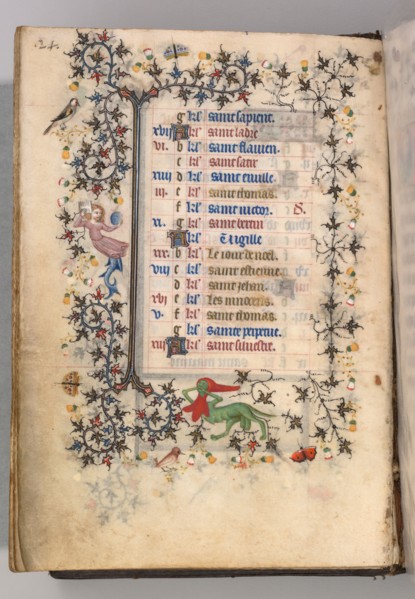 .24.
g kl' saint sapient.
xviii A kl' saint ladre
vi. b kl' saint flauien.
c kl' saint satir
xiiii d kl' sainte euuille.
iii. e kl' saint thomas.
f kl' saint uictor. S.
xi. g kl' saint bertin
A kl' Uigille
xix. b kl' Le iour de noel.
viii c kl' saint estienne.
d kl' saint iehan.
xvi e kl' Les innocens.
v. f kl' saint thomas.
g kl' sainte perpetue.
xiii A kl' saint siluestre.